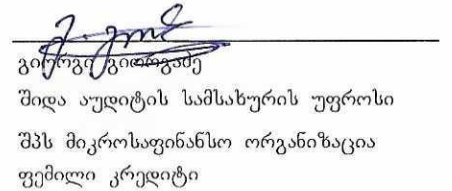 გიორგი გიორგაძე
შიდა აუდიტის სამსახურის უფროსი
შპს მიკროსაფინანსო ორგანიზაცია
ფემილი კრედიტი